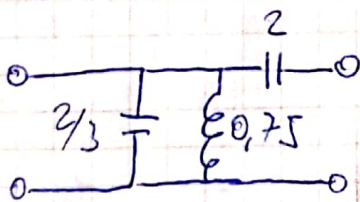 2
2/3
0,75